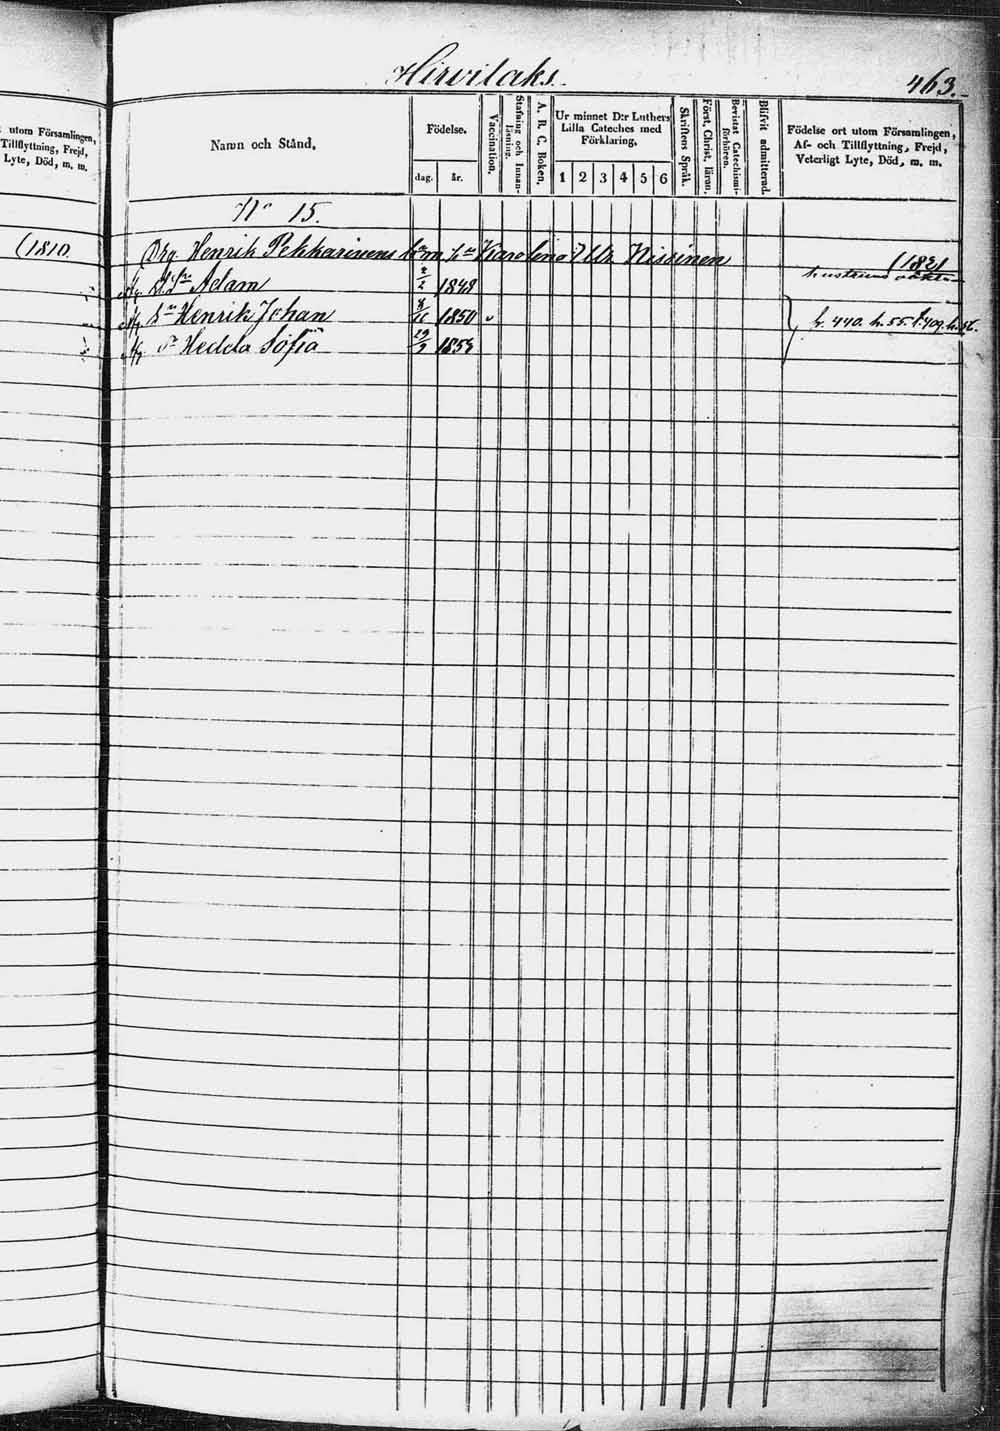 Hirvilaks.
463.
utom Församlingen,
Tillflyttning, Frejd,
Lyte, Död, m. m.
(1810.
Namn och Stånd.
Födelse.
dag.
år.
Vaccination.
Stafning och Innan-
läsning.
A. B. C. Boken.
Ur minnet D:r Luthers
Lilla Cateches med
Förklaring.
1 2 3 4 5 6
Skriftens Språk.
Först. Christ. läran.
Bevistat Catechismi-
förhören.
Blifvit admitterad.
Födelse ort utom Församlingen,
Af- och Tillflyttning, Frejd,
Veterligt Lyte, Död, m. m.
No 15.
Drg. Henrik Pekkarinens Karolina Ur. Nissinen (1821
hustruns
Adam 2/2 1848
Sn Henrik Johan 8/11 1850
f. 440. h. 55. f. 409. h. 56.
Dr Hedda Sofia 29/9 1853